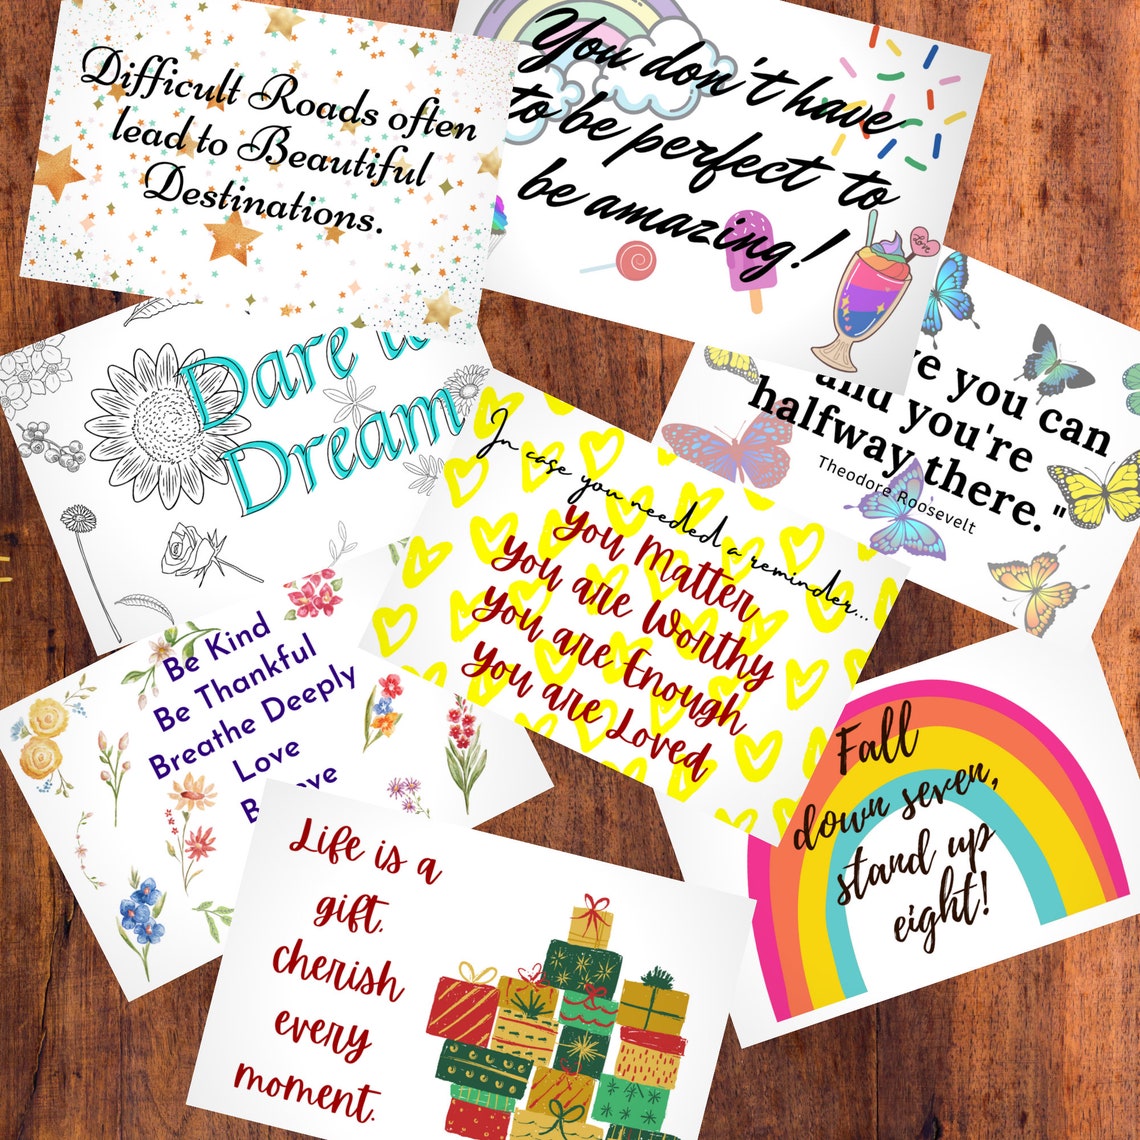 Difficult Roads often
lead to Beautiful
Destinations.
You don't have
to be perfect to
be amazing!
Love
Dare to
Dream
you can
and you're
halfway there."
Theodore Roosevelt
In case you needed a reminder...
You Matter
You are Worthy
You are Enough
You are Loved
Be Kind
Be Thankful
Breathe Deeply
Love
Fall
down seven,
stand up
eight!
Life is a
gift,
cherish
every
moment.